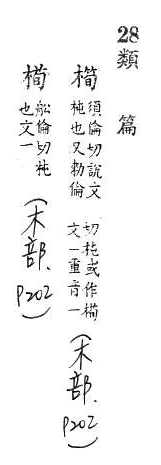 28類 篇
橁 須倫切說文
杶也又勑倫
切杶或作櫄
文一重音一 (木部. P202)
橁 船倫切杶
也文一 (木部. P202)